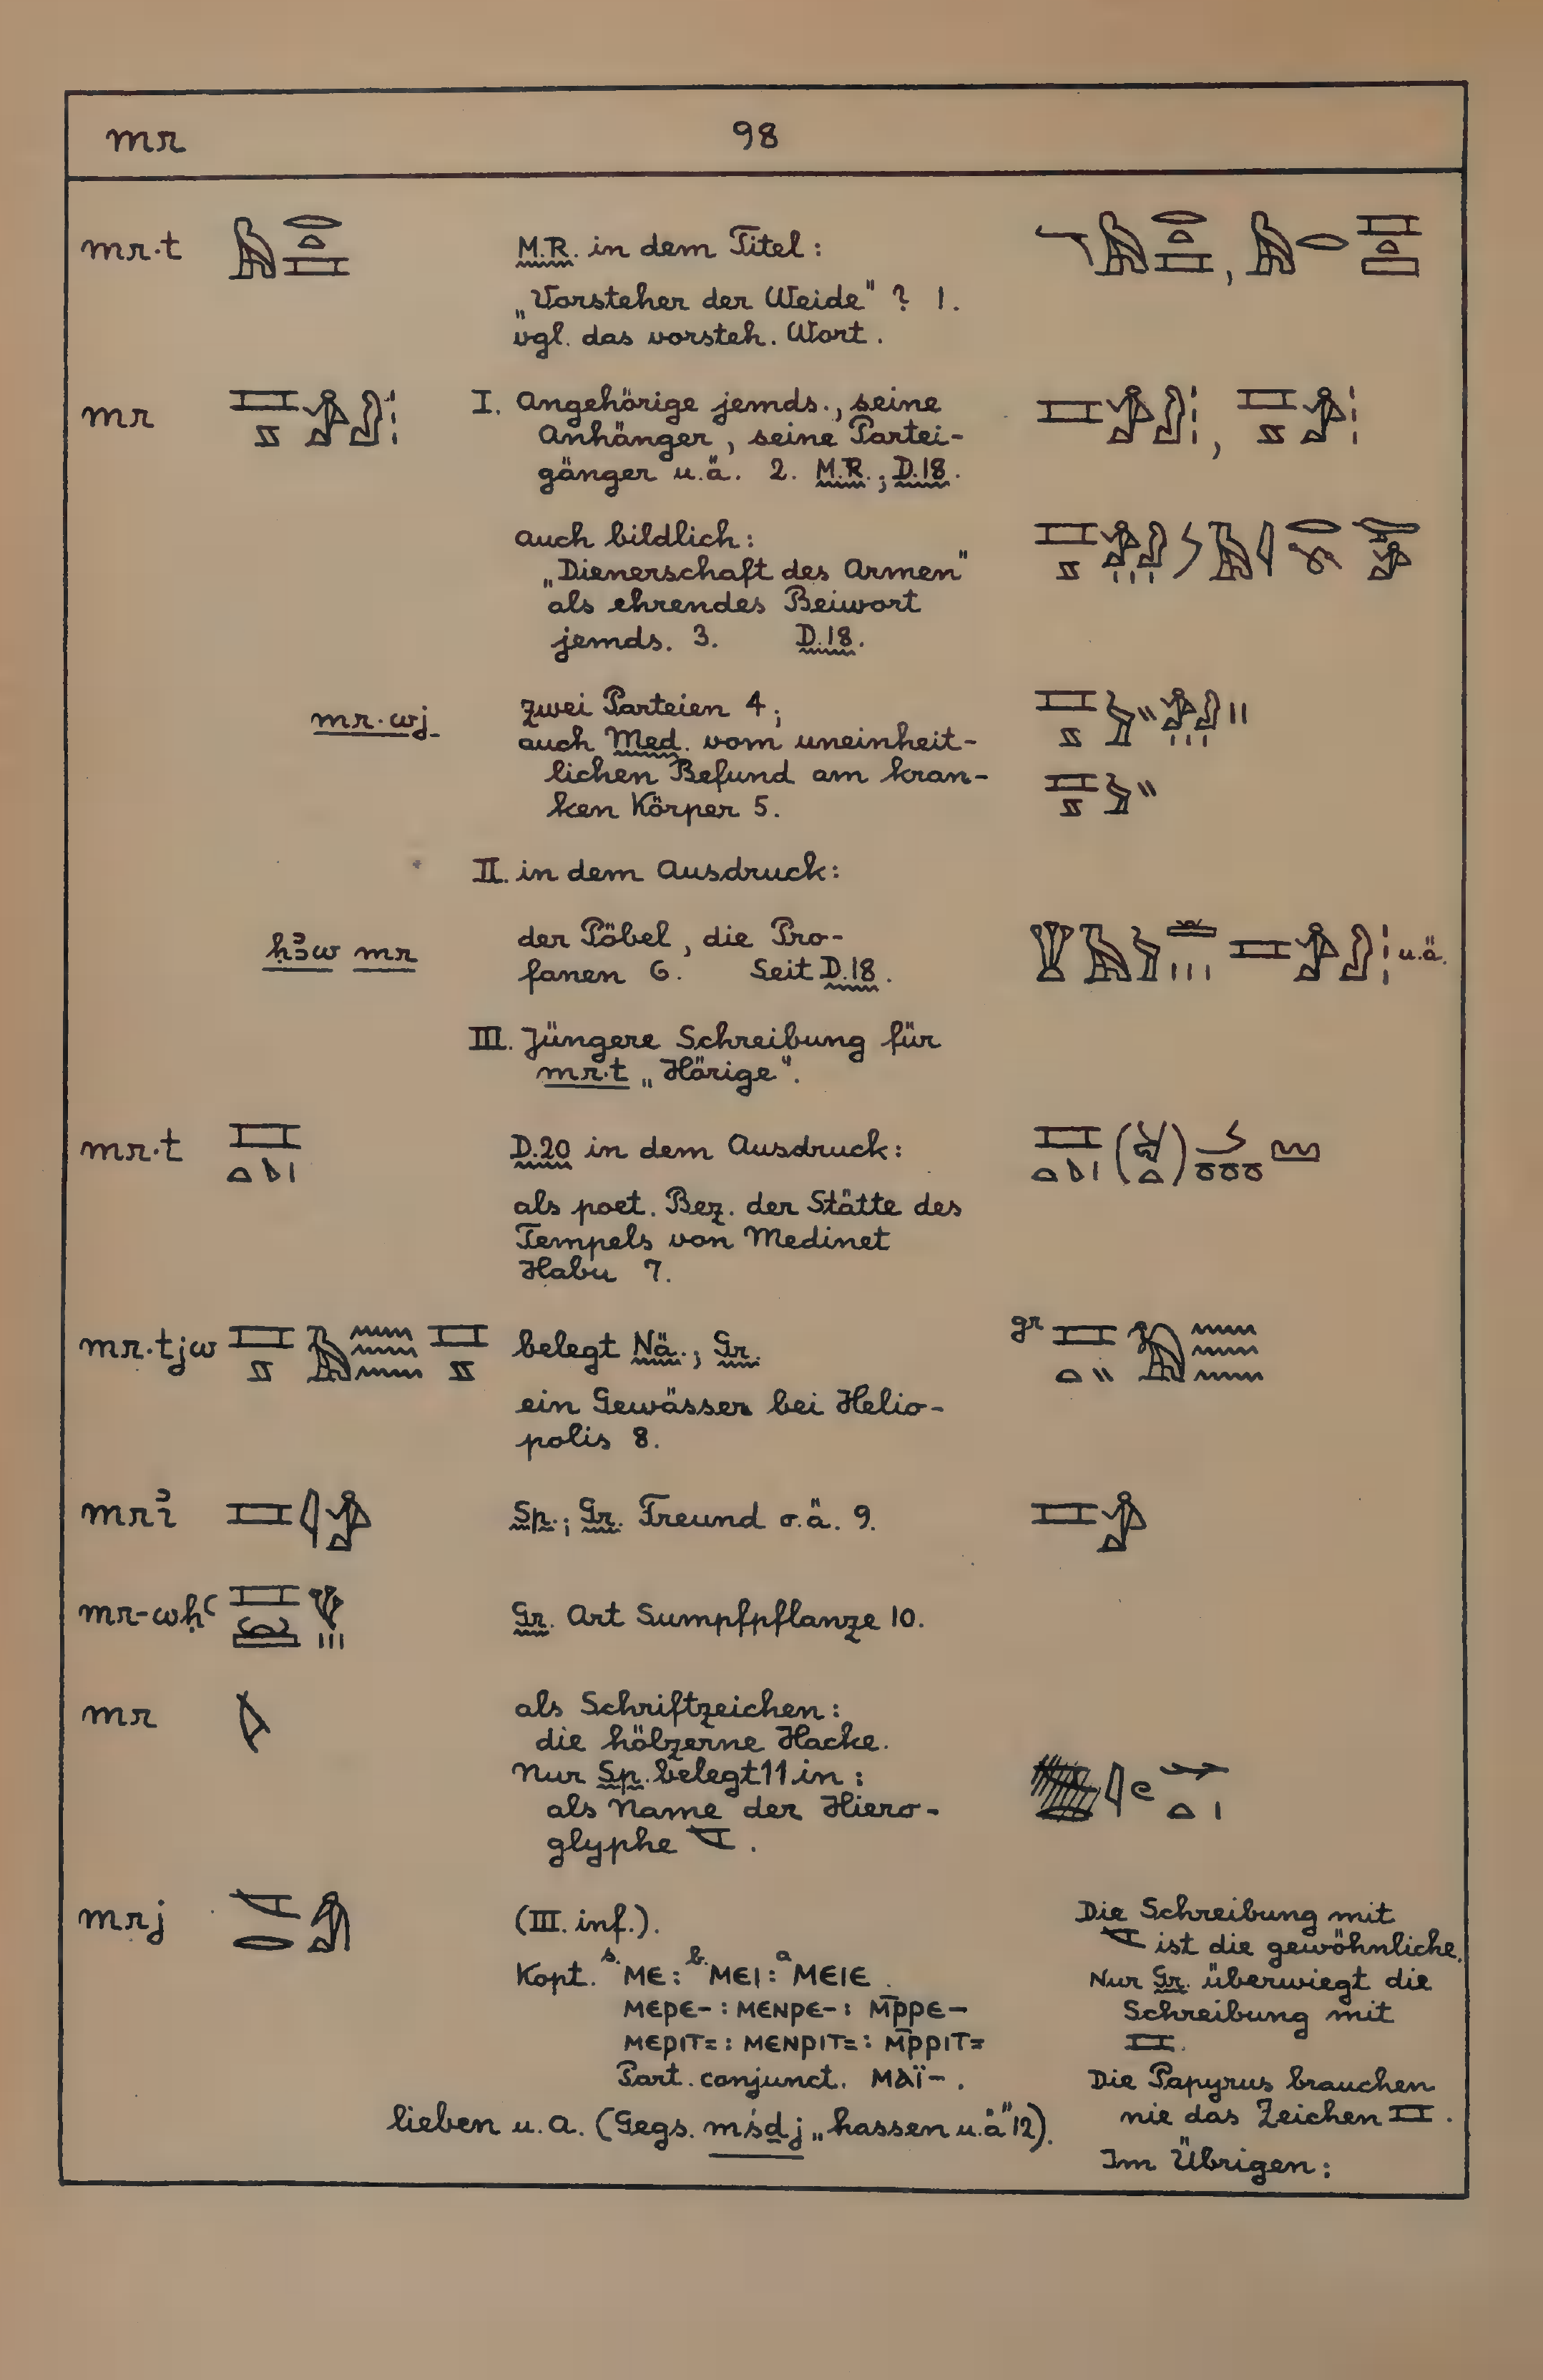 mr 98
mr·t M.R. in dem Titel:
„Vorsteher der Weide" ? 1.
vgl. das vorsteh. Wort.
mr I. Angehörige jemds., seine
Anhänger, seine Partei-
gänger u.ä. 2. M.R.; D.18.
auch bildlich:
„Dienerschaft des Armen"
als ehrendes Beiwort
jemds. 3. D.18.
mr·wj zwei Parteien 4;
auch Med. vom uneinheit-
lichen Befund am kran-
ken Körper 5.
II. in dem Ausdruck:
ḥꜣw mr der Pöbel, die Pro-
fanen 6. Seit D.18. u.ä.
III. Jüngere Schreibung für
mr·t „Hörige".
mr·t D.20 in dem Ausdruck:
als poet. Bez. der Stätte des
Tempels von Medinet
Habu 7.
mr·tjw belegt Nä.; Gr. gr
ein Gewässer bei Helio-
polis 8.
mrꞽ Sp.; Gr. Freund o.ä. 9.
mr-wḥꜥ Gr. Art Sumpfpflanze 10.
mr als Schriftzeichen:
die hölzerne Hacke.
Nur Sp. belegt 11 in:
als Name der Hiero-
glyphe .
mrj (III. inf.).
Kopt. s. ⲘⲈ : b. ⲘⲈⲒ : a ⲘⲈⲒⲈ .
ⲘⲈⲢⲈ- : ⲘⲈⲚⲢⲈ- : Ⲙ̅ⲢⲢⲈ-
ⲘⲈⲢⲒⲦ= : ⲘⲈⲚⲢⲒⲦ= : Ⲙ̅ⲢⲢⲒⲦ=
Part. conjunct. ⲘⲀⲒ̈- .
lieben u.a. (Gegs. mśḏj „hassen u.ä" 12).
Die Schreibung mit
ist die gewöhnliche.
Nur Gr. überwiegt die
Schreibung mit
.
Die Papyrus brauchen
nie das Zeichen .
Im Übrigen: